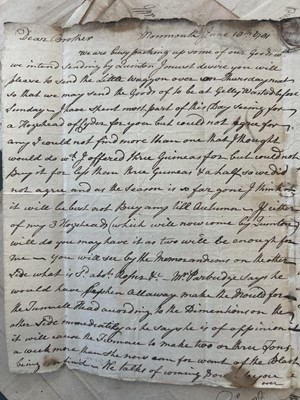 Dear Brother Monmouth June 10th 1781
We are busy packing up some of our Goods wch
we intend sending by Quinton I must desire you will
please to send the Little Waggon over on Thursday next
so that we may send the Goods to be at Wasted before
Sunday I have spent most part of this Day seeing for
a Hogshead of Cyder for you but could not agree for
any I could not find more than one that I thought
would do wch I offered three Guineas for but could not
buy it for less than three Guineas & a half so we did
not agree and as the season is so far gone I think
it will be best not Buy any till Autumn If either
of my 3 Hogsheads (which will now come by Quinton)
will do you may have it as two will be enough for
me You will see by the Memorandums on the other
side what is Mr Partridge says he
would have Stephen Allaway make the Mould for
the Tunnell Head according to the Dimentions on the
other Side immediately as he says he is of oppinion
it will cause the Furnace to make two or three Tons
a week more than she now can for want of the Blast
being confin'd He talks of coming Down
over